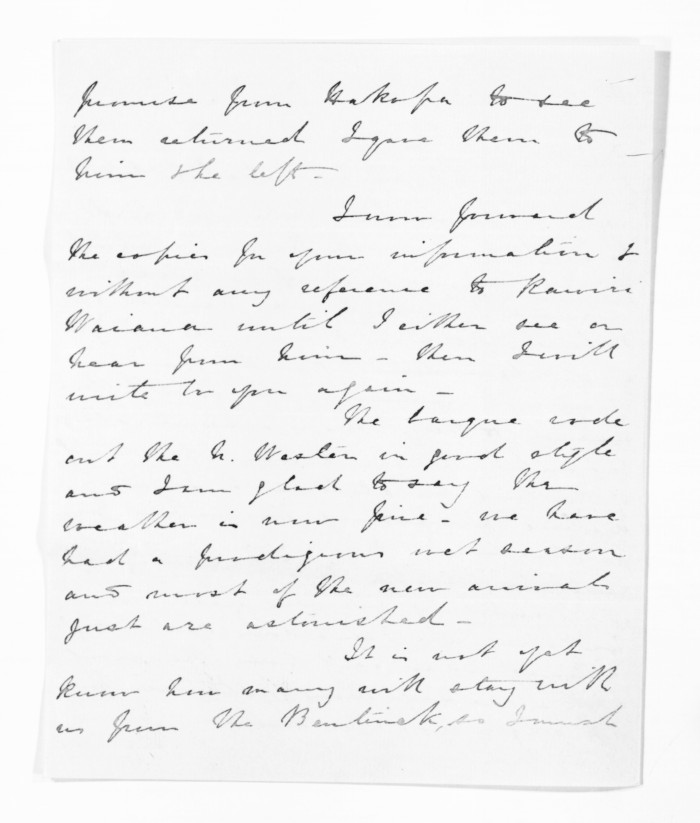 promise from Hakopa to see
them returned I gave them to
him & he left -
I now forward
the copies for your information &
without any reference to Kawiri
Waiana until I either see or
hear from him - then I will
write to you again -
The barque rode
out the N. Wester in good style
and I am glad to say the
weather is now fine - we have
had a prodigious wet season
and most of the new arrivals
just are astonished -
It is not yet
know how many will stay with
us from the Bentinck, so I must